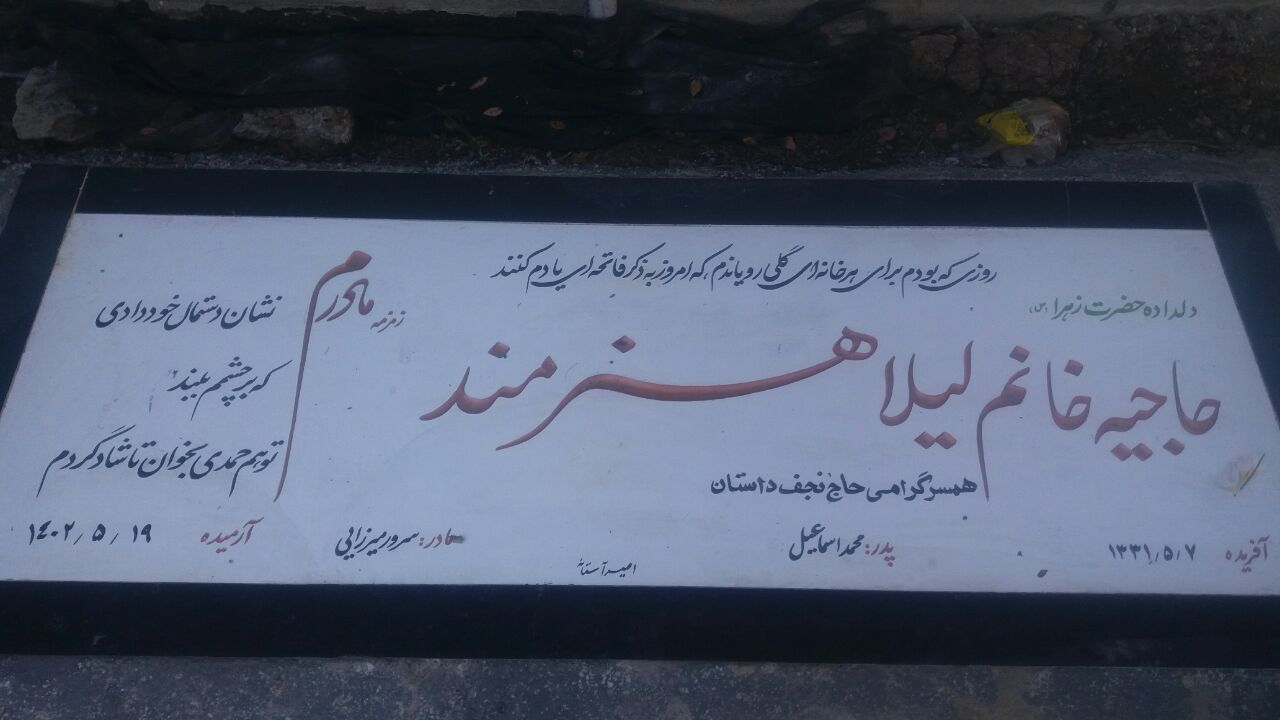 روزی که بودم برای هر خانه ای گلی رویاندم، که امروز به ذکر فاتحه ای یادم کنند
دلداده حضرت زهرا (س)
حاجیه خانم لیلا هنرمند
همسر گرامی حاج نجف داستان
زمزمه مادرم
نشان دستمال خود دادی
که بر چشمم ببند
تو هم حمدی بخوان تا شاد گردم
آفریده ۱۳۳۱/۵/۷
پدر: محمد اسماعیل
مادر: سرور میرزایی
آرمیده ۱۴۰۲/۵/۱۹
امیر آستانه